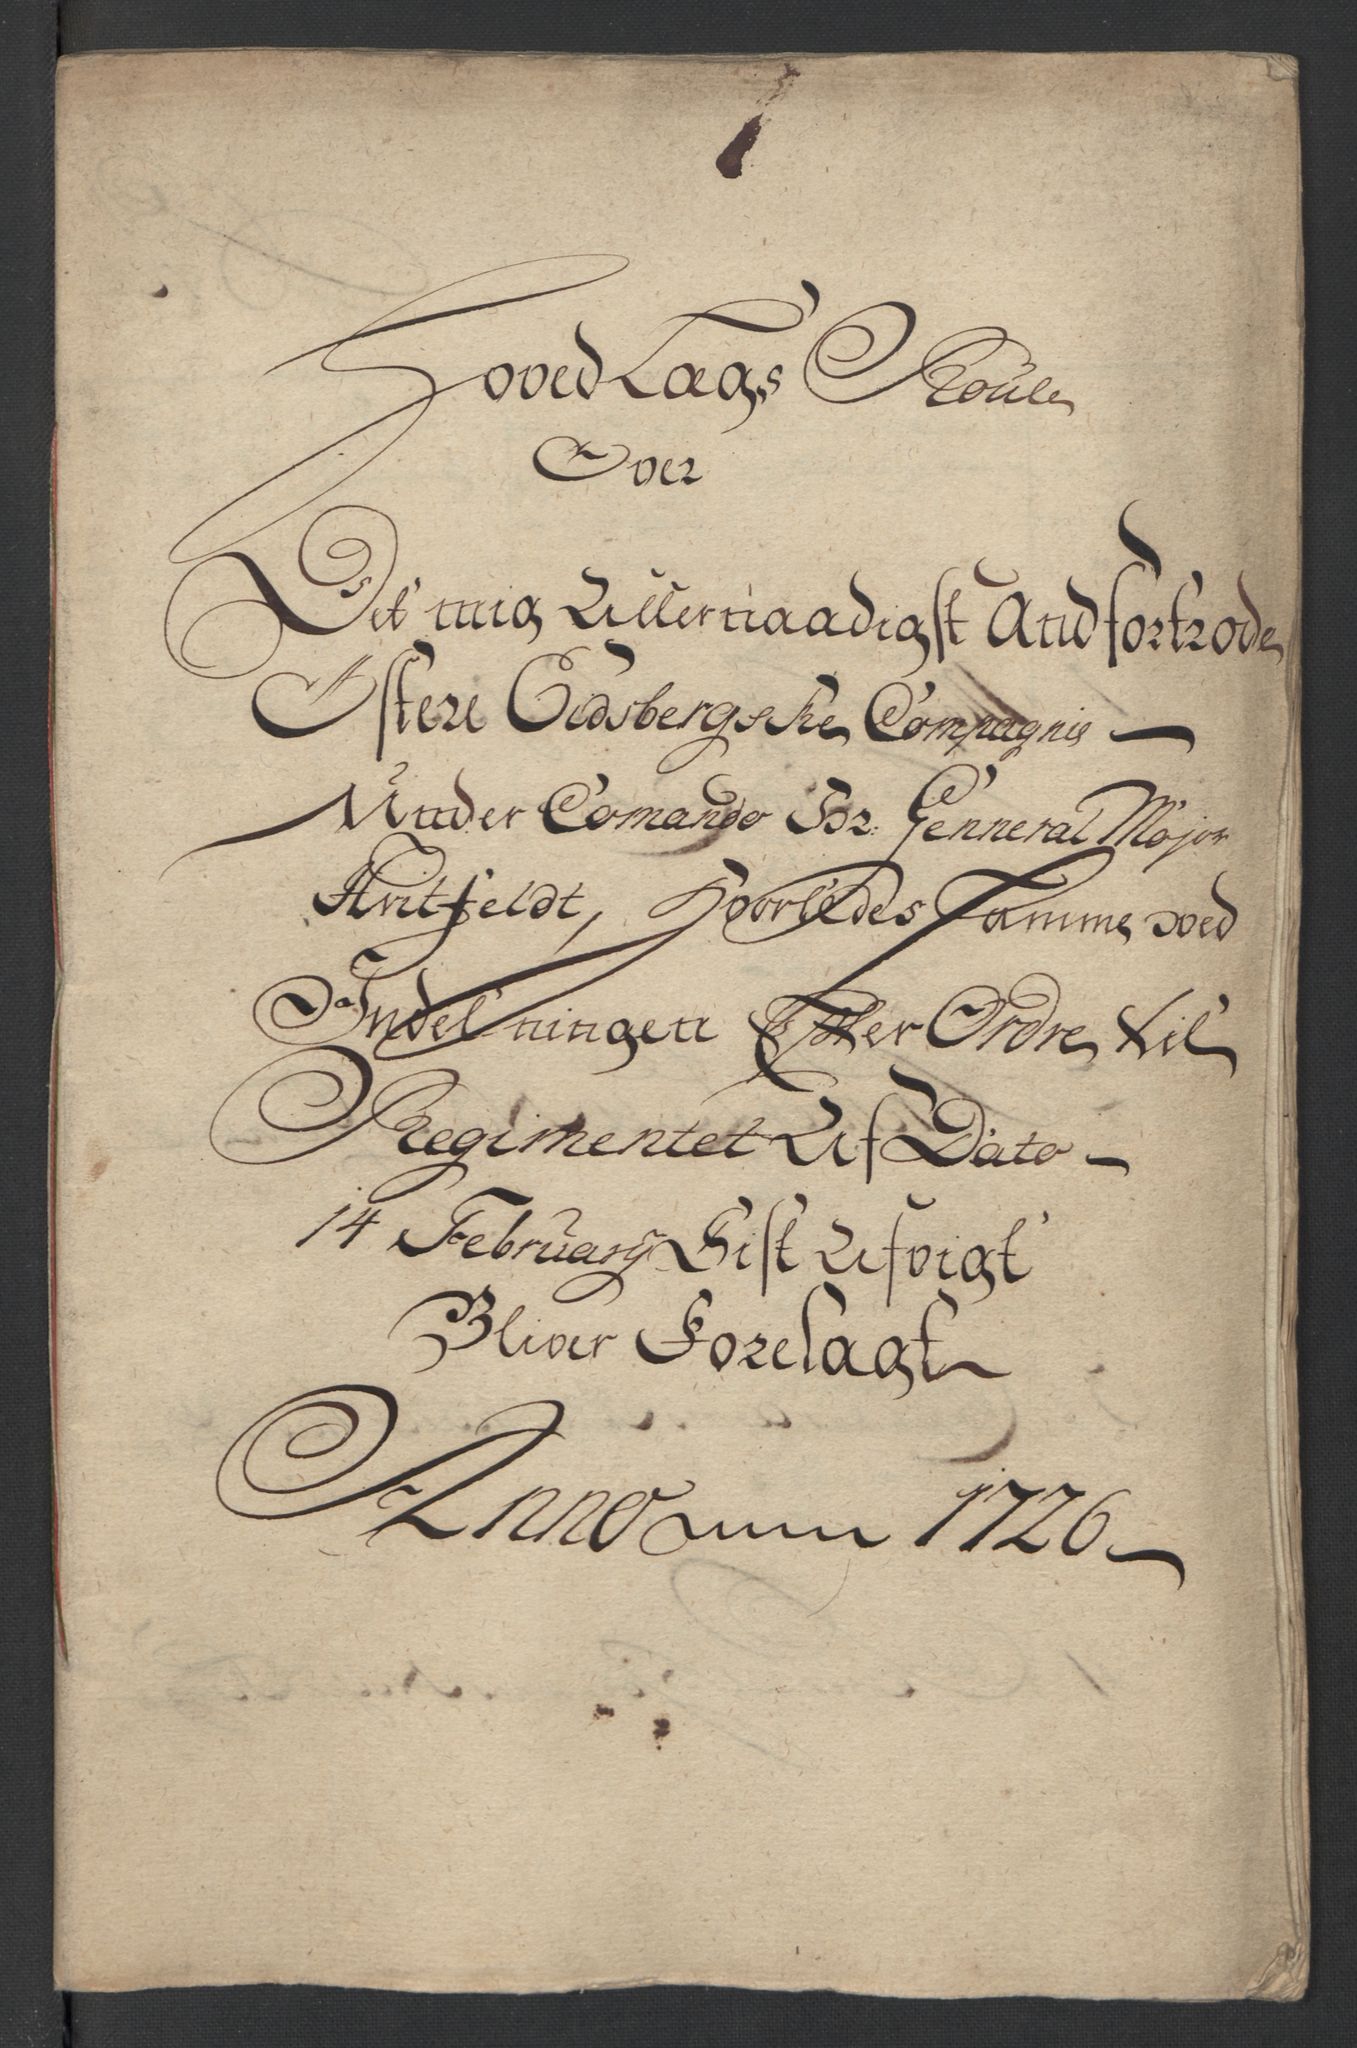 Hoved Lægs Roule
Over
Det mig Allernaadigst Andfortrode
Østere Eidsbergske Compagnie
Under Comando Hr. Genneral Major
Hvitfeldt, Hvorledes Samme ved
Indelningen Efter Ordre til
Regimentet Af Dato
14 February Sist Afvigt
Bliver Forelagt
Anno 1726